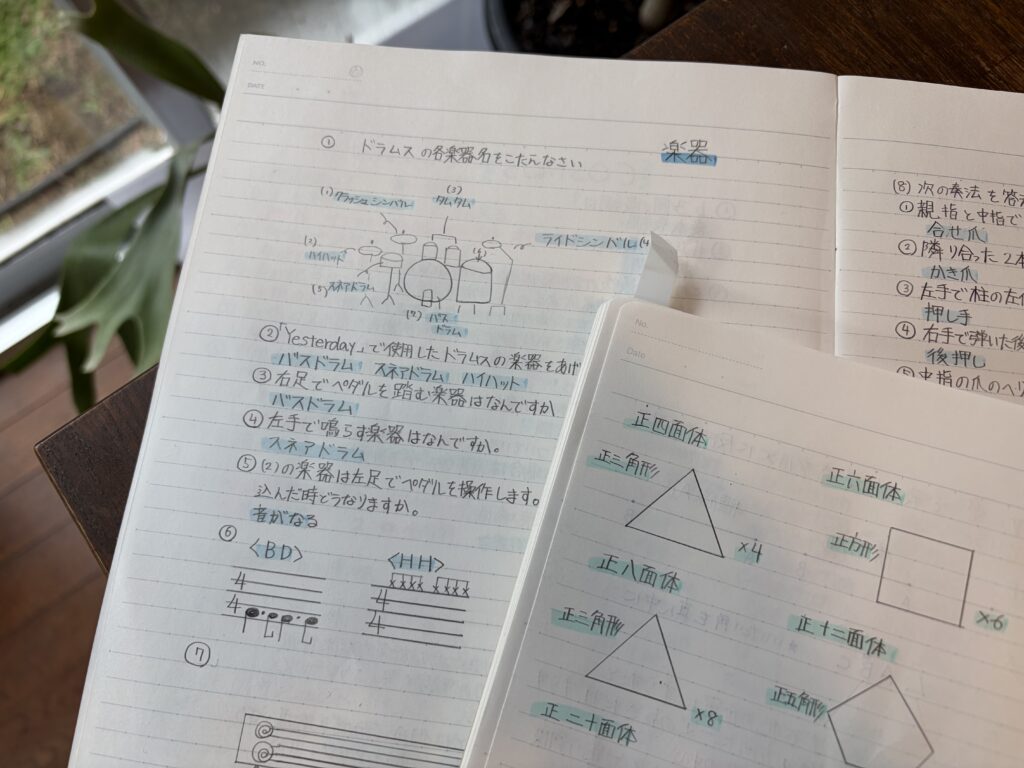 NO.
DATE
楽器
① ドラムスの各楽器名をこたんなさい
(1) クラッシュシンバル
(3) タムタム
ライドシンバル(4
ハイハット
(5) スネアドラム
バス
ドラム
②「Yesterday」で使用したドラムスの楽器をあげ
バスドラム スネアドラム ハイハット
③ 右足でペダルを踏む楽器はなんですか
バスドラム
④ 左手で鳴らす楽器はなんですか。
スネアドラム
⑤ (2)の楽器は左足でペダルを操作します。
込んだ時どうなりますか。
音がなる
⑥
〈BD〉
〈HH〉
4
4
4
4
⑦
(8) 次の奏法を答
① 親指と中指で
合せ爪
② 隣り合った2本
かき爪
③ 左手で柱の左
押し手
④ 右手で弾いた後
後押し
中指の爪のへリ
No.
Date
正四面体
正三角形
×4
正六面体
正方形
×6
正八面体
正三角形
×8
正十二面体
正五角形
正二十面体